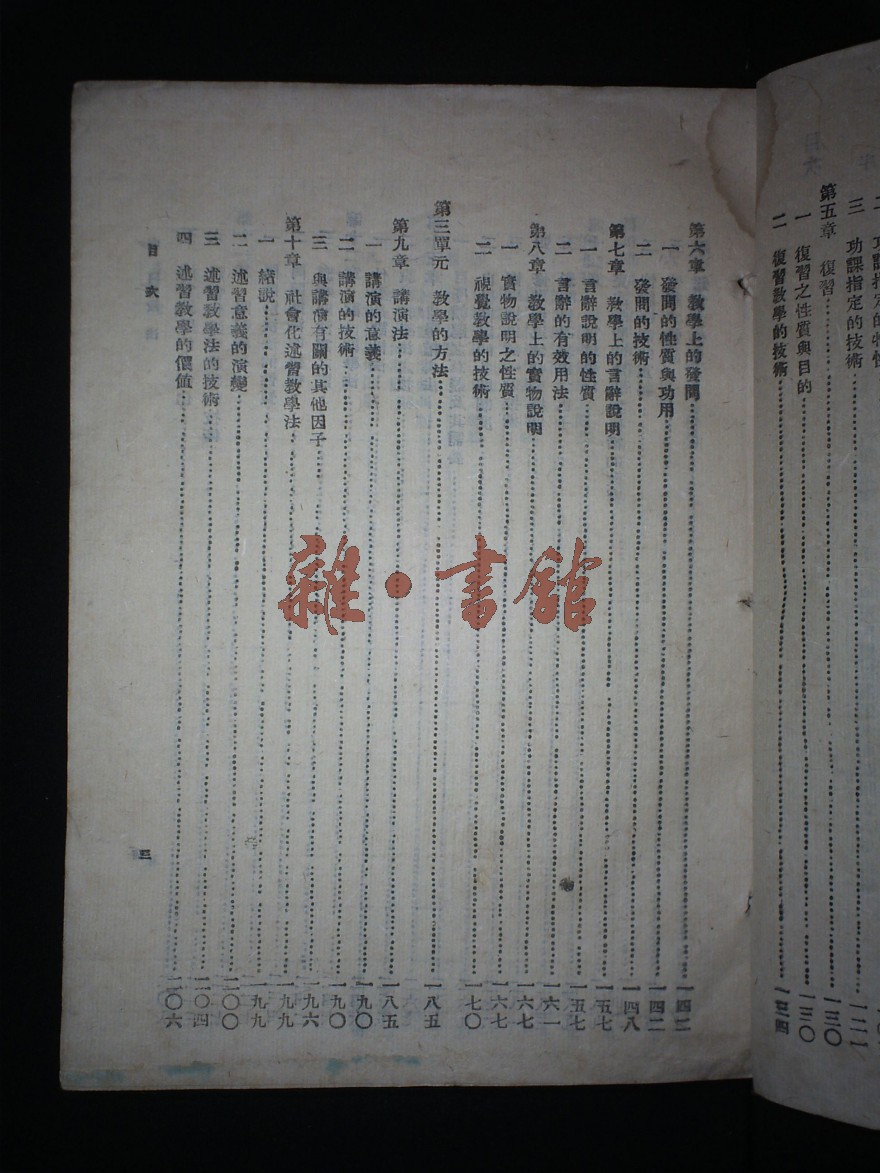 功課指定的技術……一二二
第五章 復習……一三〇
一 復習之性質與目的……一三〇
二 復習教學的技術……一三四
第六章 教學上的發問……一四二
一 發問的性質與功用……一四二
二 發問的技術……一四八
第七章 教學上的言辭說明……一五七
一 言辭說明的性質……一五七
二 言辭的有效用法……一六一
第八章 教學上的實物說明……一六七
一 實物說明之性質……一六七
二 視覺教學的技術……一七〇
第三單元 教學的方法……一八五
第九章 講演法……一八五
一 講演的意義……一九〇
二 講演的技術……一九〇
三 與講演有關的其他因子……一九六
第十章 社會化述習教學法……一九九
一 緒說……一九九
二 述習意義的演變……二〇〇
三 述習教學法的技術……二〇四
四 述習教學的價值……二〇六
目次
三
雜·書館